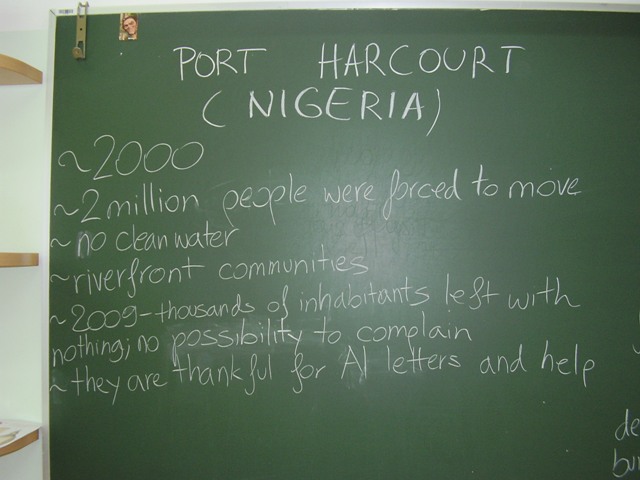 PORT HARCOURT
(NIGERIA)
~2000
~2 million people were forced to move
~ no clean water
~riverfront communities
~2009-thousands of inhabitants left with
nothing; no possibility to complain
~they are thankful for AI letters and help
de
bur